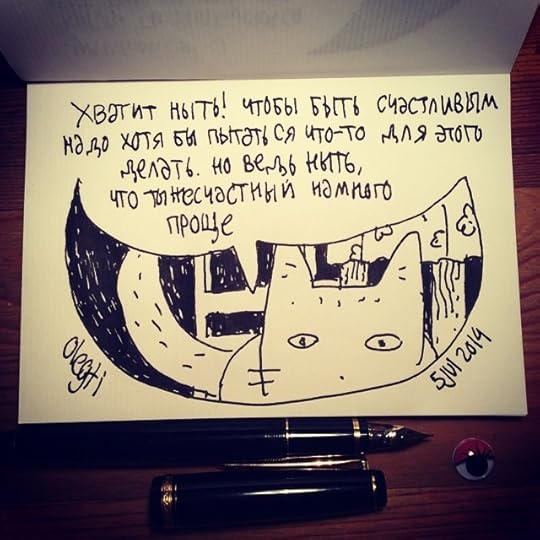 Хватит ныть! чтобы быть счастливым
надо хотя бы пытаться что-то для этого
делать. но ведь ныть,
что ты несчастный намного
проще
olegti
5 jul 2014